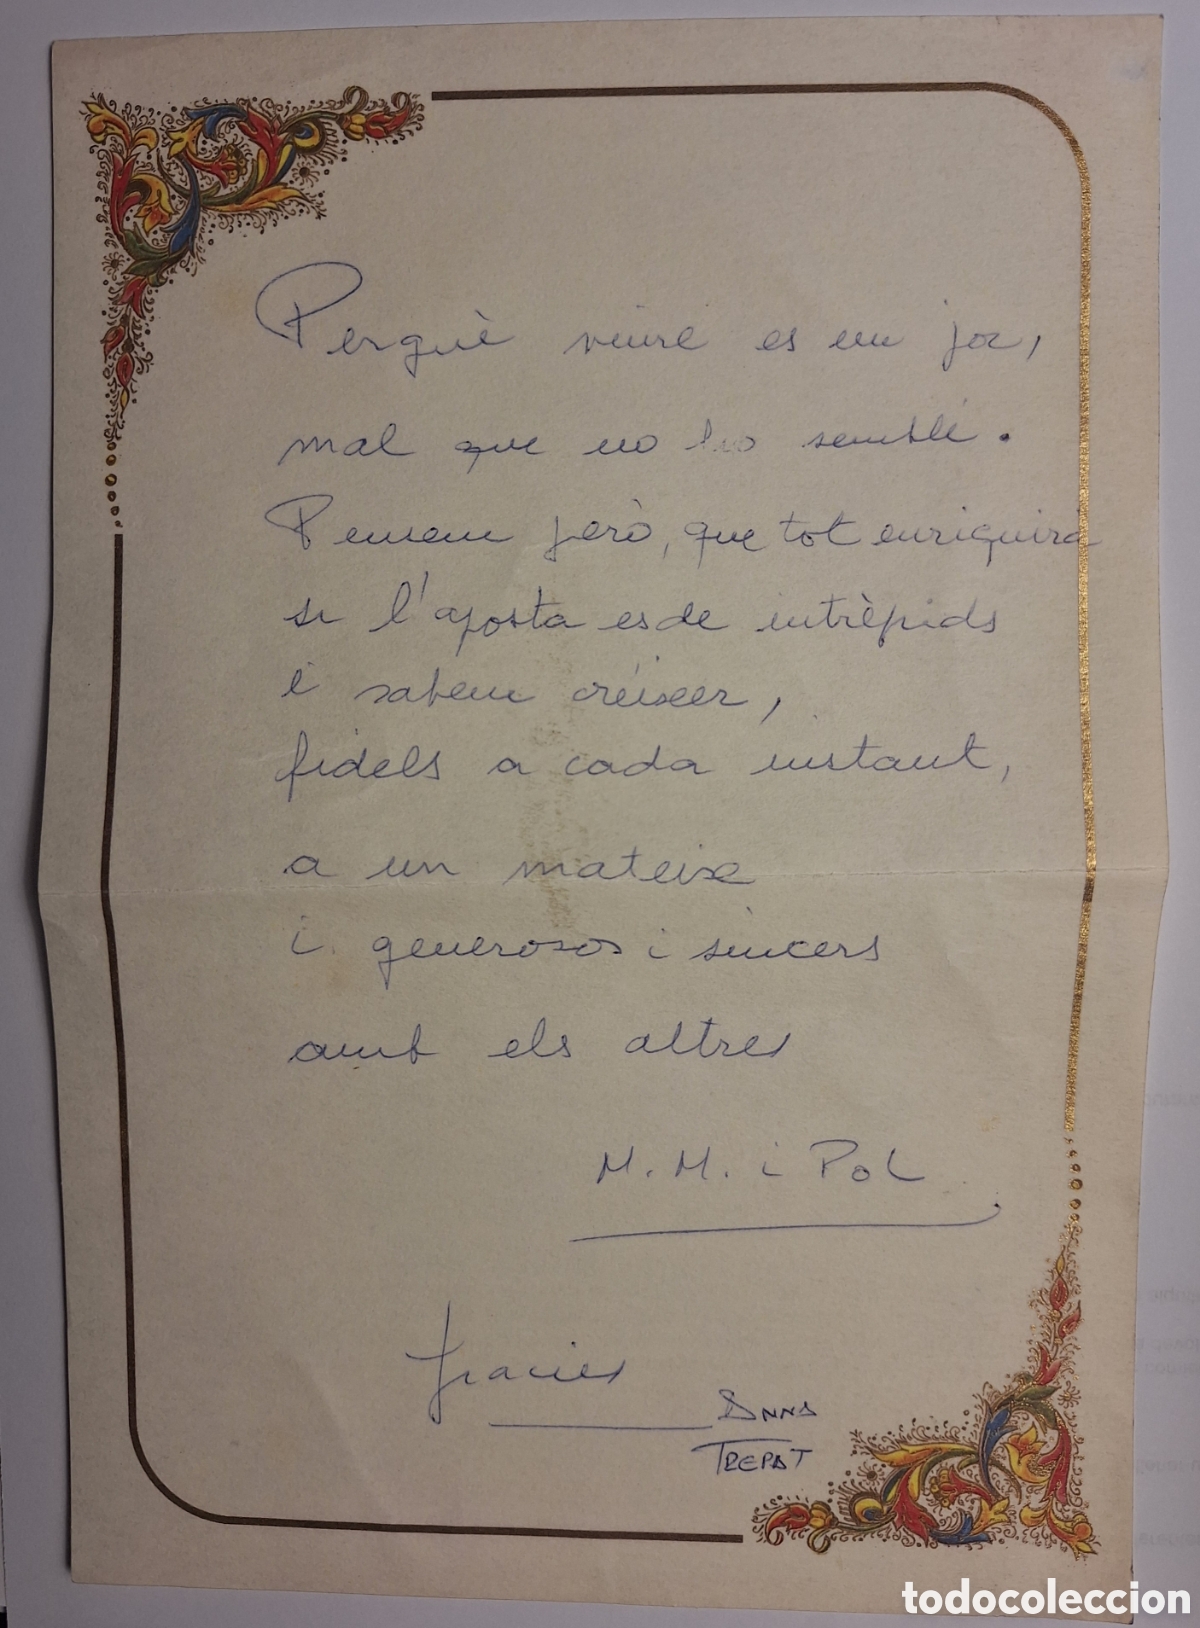 Perquè viure es un joc,
mal que no ho semblé.
Pensem però, que tot enriquirà
si l'aposta es de intrèpids
i sabem créixer,
fidels a cada instant,
a un mateix
i generosos i sincers
amb els altres
M. M. i Pol
Gracies
Anna
Trepat
todocoleccion